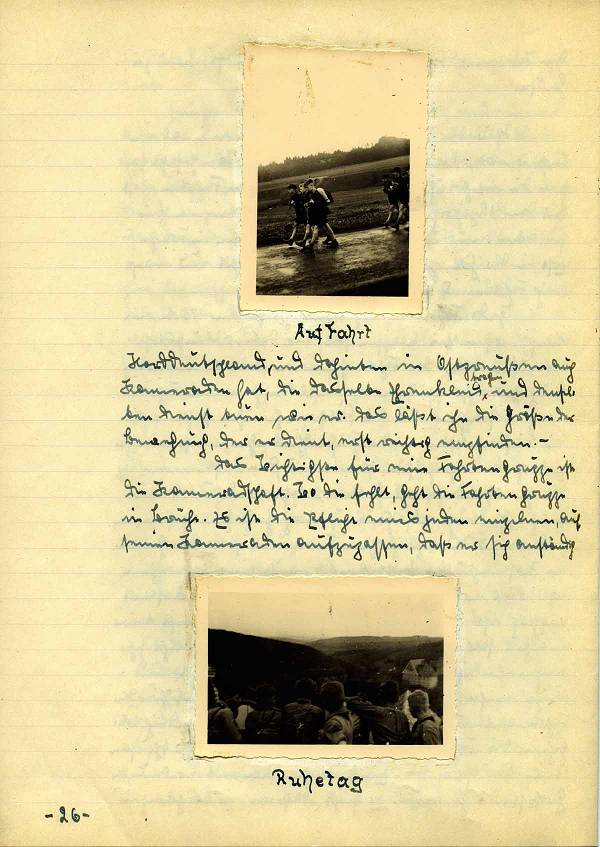 Auf Fahrt
Norddeutschland, und dahinten in Ostpreußen auch
Kameraden hat, die dasselbe Ehrenkleid tragen und densel-
ben Dienst tuen wie er. Das läßt ihn die Größe der
Bewegung, der er dient, erst richtig empfinden.-
Das Wichtigste für eine Fahrtengruppe ist
die Kameradschaft. Wo die fehlt, geht die Fahrtengruppe
in Brüche. Es ist die Pflicht eines jeden einzelnen, auf
seinen Kameraden aufzupassen, daß er sich anständig
Ruhetag
-26-